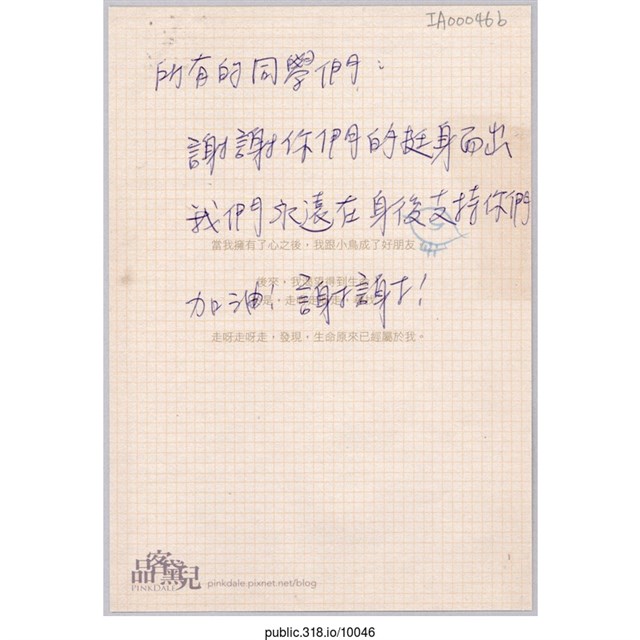 IA00046b
所有的同學們：
謝謝你們的挺身而出
我們永遠在身後支持你們
當我擁有了心之後，我跟小鳥成了好朋友。
後來，我
加油！謝謝！
走呀走呀走，發現，生命原來已經屬於我。
品客黛兒
PINKDALE
pinkdale.pixnet.net/blog
public.318.io/10046